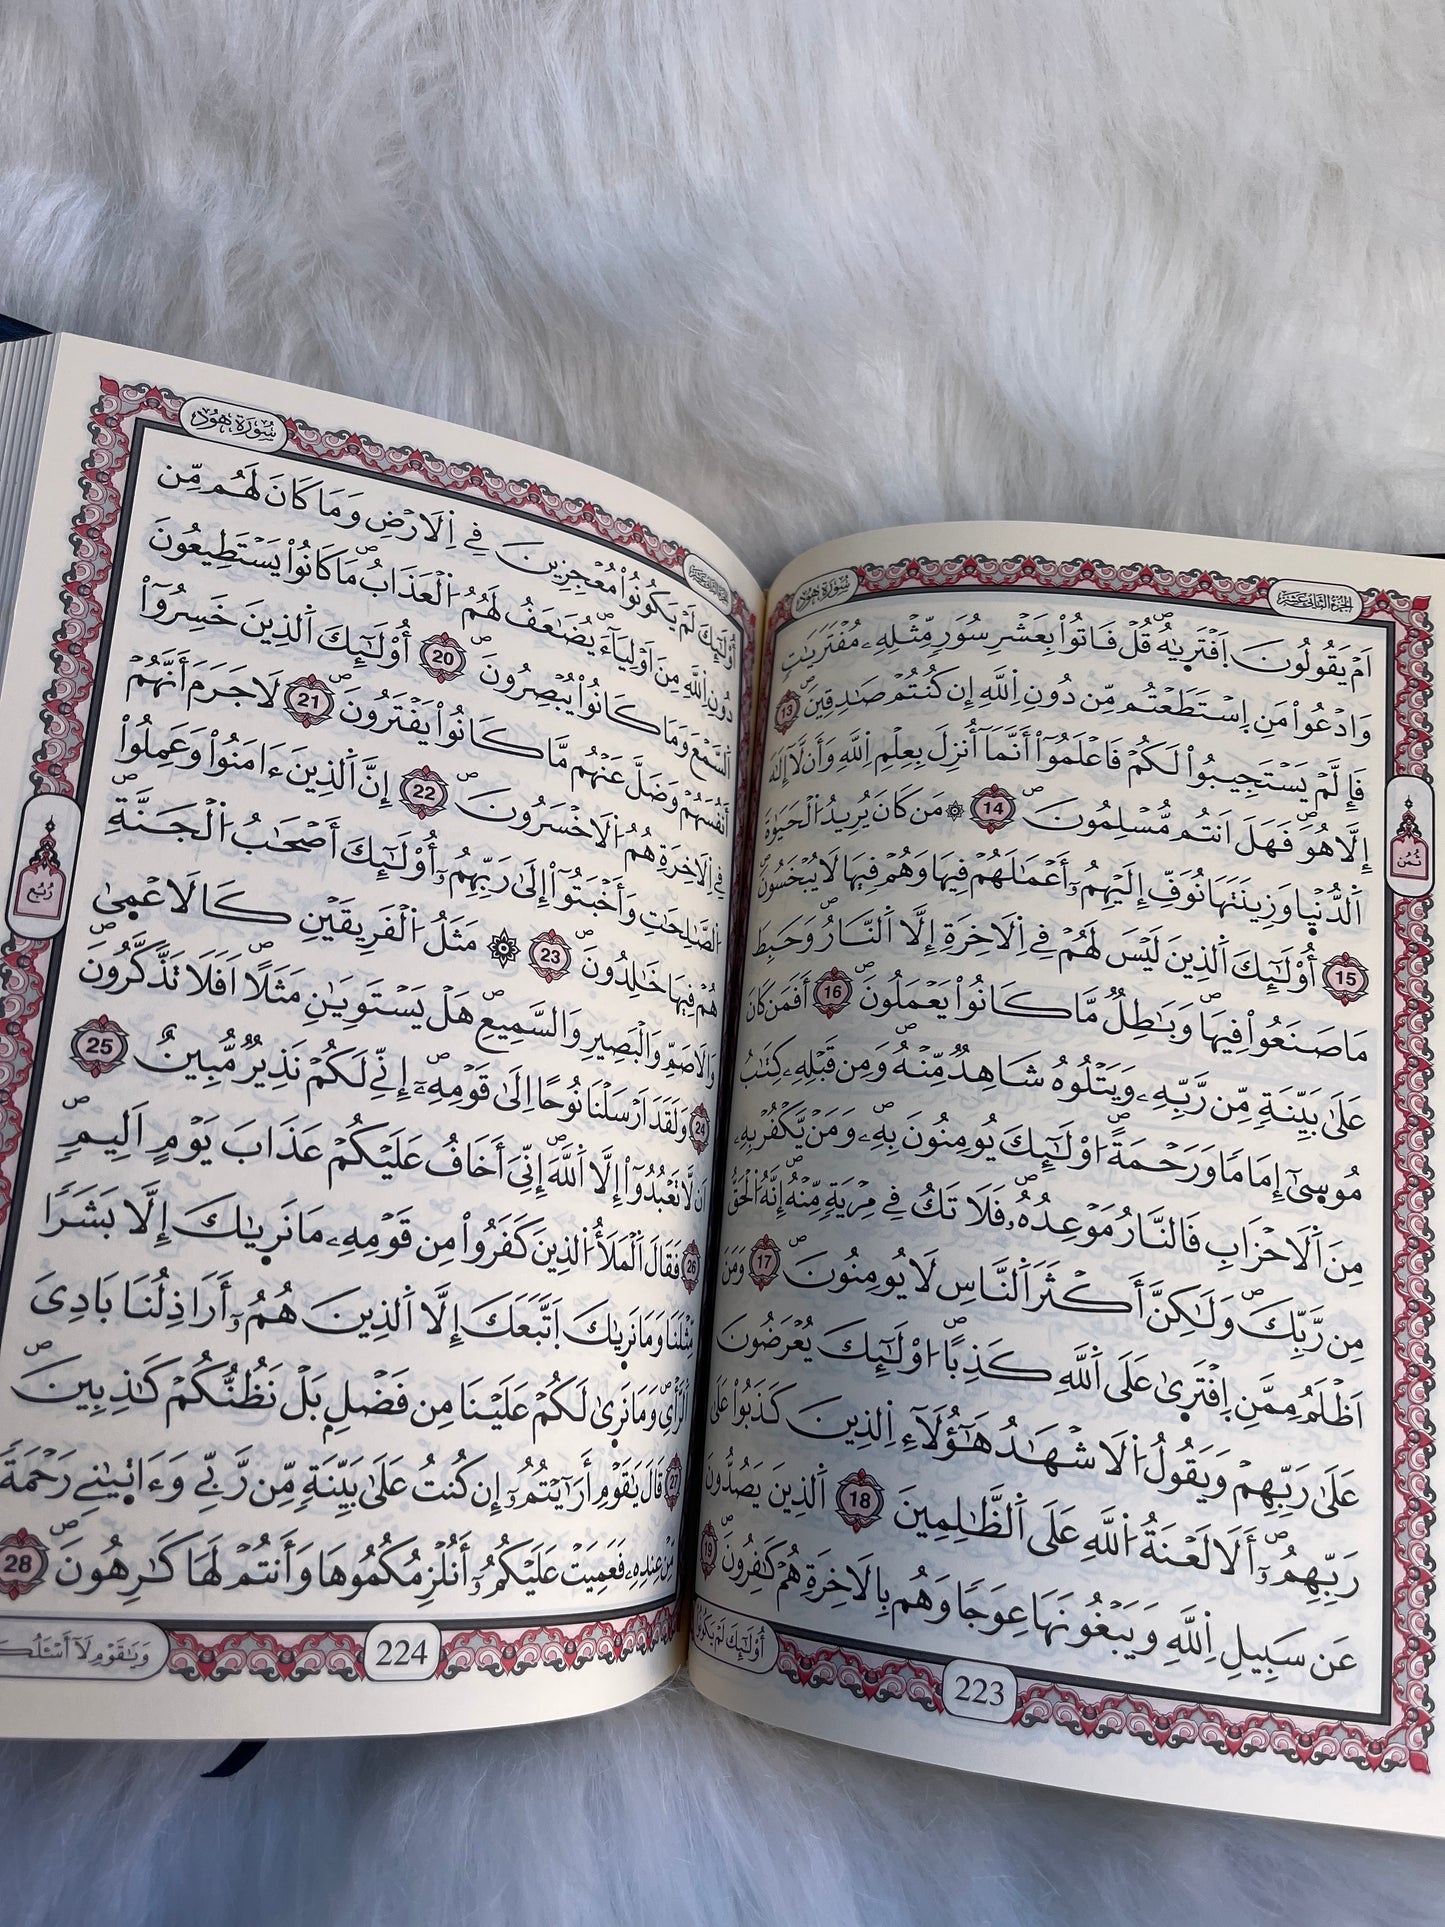 سُورَةُ هُودٍ
الجُزْءُ الثَّانِيَ عَشَرَ
اَمْ يَقُولُونَ اَ۪فْتَر۪يٰهُۖ قُلْ فَاتُواْ بِعَشْرِ سُوَرٖ مِّثْلِهِۦ مُفْتَرَيَٰتٖ
وَادْعُواْ مَنِ اِ۪سْتَطَعْتُم مِّن دُونِ اِ۬للَّهِ إِن كُنتُمْ صَٰدِقِينَۖ 13
فَإِلَّمْ يَسْتَجِيبُواْ لَكُمْ فَاعْلَمُوٓاْ أَنَّمَآ أُنزِلَ بِعِلْمِ اِ۬للَّهِ وَأَن لَّآ إِلَٰهَ
إِلَّا هُوَۖ فَهَلَ اَنتُم مُّسْلِمُونَۖ 14 ۞ مَن كَانَ يُرِيدُ اُ۬لْحَيَوٰةَ
اَ۬لدُّنْي۪ا وَزِينَتَهَا نُوَفِّ إِلَيْهِمُۥٓ أَعْمَٰلَهُمْ فِيهَا وَهُمْ فِيهَا لَا يُبْخَسُونَۖ
15 أُوْلَٰٓئِكَ اَ۬لذِينَ لَيْسَ لَهُمْ فِے اِ۬لَاخِرَةِ إِلَّا اَ۬لنَّارُۖ وَحَبِطَ
مَا صَنَعُواْ فِيهَاۖ وَبَٰطِلٞ مَّا كَانُواْ يَعْمَلُونَۖ 16 أَفَمَن كَانَ
عَلَىٰ بَيِّنَةٖ مِّن رَّبِّهِۦ وَيَتْلُوهُ شَاهِدٞ مِّنْهُۖ وَمِن قَبْلِهِۦ كِتَٰبُ
مُوس۪ىٰٓ إِمَامٗا وَرَحْمَةًۖ ا۟وْلَٰٓئِكَ يُومِنُونَ بِهِۦۖ وَمَنْ يَّكْفُرْ بِهِۦ
مِنَ اَ۬لَاحْزَابِ فَالنَّارُ مَوْعِدُهُۥۖ فَلَا تَكُ فِے مِرْيَةٖ مِّنْهُۖ إِنَّهُ اُ۬لْحَقُّ
مِن رَّبِّكَۖ وَلَٰكِنَّ أَكْثَرَ اَ۬لنَّاسِ لَا يُومِنُونَۖ 17 وَمَنَ
اَظْلَمُ مِمَّنِ اِ۪فْتَر۪ىٰ عَلَى اَ۬للَّهِ كَذِباًۖ ا۟وْلَٰٓئِكَ يُعْرَضُونَ
عَلَىٰ رَبِّهِمْ وَيَقُولُ اُ۬لَاشْهَٰدُ هَٰٓؤُلَآءِ اِ۬لذِينَ كَذَبُواْ عَلَىٰ
رَبِّهِمُۥٓۖ أَلَا لَعْنَةُ اُ۬للَّهِ عَلَى اَ۬لظَّٰلِمِينَ 18 اَ۬لذِينَ يَصُدُّونَ
عَن سَبِيلِ اِ۬للَّهِ وَيَبْغُونَهَا عِوَجٗا وَهُم بِالَاخِرَةِ هُمْ كَٰفِرُونَۖ 19
ثُمُن
أُوْلَٰٓئِكَ لَمْ يَكُونُواْ
223
سُورَةُ هُودٍ
الجُزْءُ الثَّانِيَ عَشَرَ
أُوْلَٰٓئِكَ لَمْ يَكُونُواْ مُعْجِزِينَ فِے اِ۬لَارْضِ وَمَا كَانَ لَهُم مِّن
دُونِ اِ۬للَّهِ مِنَ اَوْلِيَآءَۖ يُضَٰعَفُ لَهُمُ اُ۬لْعَذَابُۖ مَا كَانُواْ يَسْتَطِيعُونَ
اَ۬لسَّمْعَ وَمَا كَانُواْ يُبْصِرُونَۖ 20 أُوْلَٰٓئِكَ اَ۬لذِينَ خَسِرُوٓاْ
أَنفُسَهُمْ وَضَلَّ عَنْهُم مَّا كَانُواْ يَفْتَرُونَۖ 21 لَا جَرَمَ أَنَّهُمْ
فِے اِ۬لَاخِرَةِ هُمُ اُ۬لَاخْسَرُونَۖ 22 إِنَّ اَ۬لذِينَ ءَامَنُواْ وَعَمِلُواْ
اُ۬لصَّٰلِحَٰتِ وَأَخْبَتُوٓاْ إِلَىٰ رَبِّهِمُۥٓ أُوْلَٰٓئِكَ أَصْحَٰبُ اُ۬لْجَنَّةِۖ
هُمْ فِيهَا خَٰلِدُونَۖ 23 ۞ مَثَلُ اُ۬لْفَرِيقَيْنِ كَالَاعْم۪ىٰ
وَالَاصَمِّ وَالْبَصِيرِ وَالسَّمِيعِۖ هَلْ يَسْتَوِيَٰنِ مَثَلاًۖ اَفَلَا تَذَّكَّرُونَۖ
24 وَلَقَدَ اَرْسَلْنَا نُوحًا اِلَىٰ قَوْمِهِۦٓۖ إِنِّے لَكُمْ نَذِيرٞ مُّبِينٌ 25
اَن لَّا تَعْبُدُوٓاْ إِلَّا اَ۬للَّهَۖ إِنِّيَ أَخَافُ عَلَيْكُمْ عَذَابَ يَوْمٍ اَلِيمٖۖ
26 فَقَالَ اَ۬لْمَلَأُ اُ۬لذِينَ كَفَرُواْ مِن قَوْمِهِۦ مَا نَر۪يٰكَ إِلَّا بَشَرٗا
مِّثْلَنَا وَمَا نَر۪يٰكَ اَ۪تَّبَعَكَ إِلَّا اَ۬لذِينَ هُمُۥٓ أَرَاذِلُنَا بَادِيَ
اَ۬لرَّأْيِۖ وَمَا نَر۪ىٰ لَكُمْ عَلَيْنَا مِن فَضْلِۢ بَلْ نَظُنُّكُمْ كَٰذِبِينَۖ
27 قَالَ يَٰقَوْمِ أَرَٰٓيْتُمُۥٓ إِن كُنتُ عَلَىٰ بَيِّنَةٖ مِّن رَّبِّے وَءَات۪يٰنِے رَحْمَةٗ
مِّنْ عِندِهِۦ فَعَمِيَتْ عَلَيْكُمُۥٓ أَنُلْزِمُكُمُوهَا وَأَنتُمْ لَهَا كَٰرِهُونَۖ 28
رُبُع
وَيَٰقَوْمِ لَآ أَسْـَٔلُكُ
224